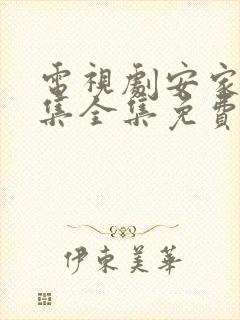 電視劇安家
集全集免費
伊東美華